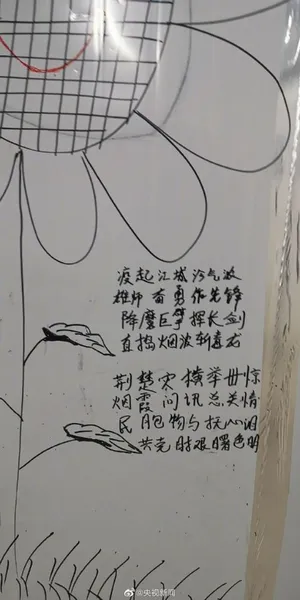 疫起江城气
雄师奋勇作先锋
降魔巨擘挥长剑
直捣烟波斩毒龙
荆楚横举世惊
烟霞问讯总关情
民胞物与抚心
共克时艰曙色明
@央视新闻